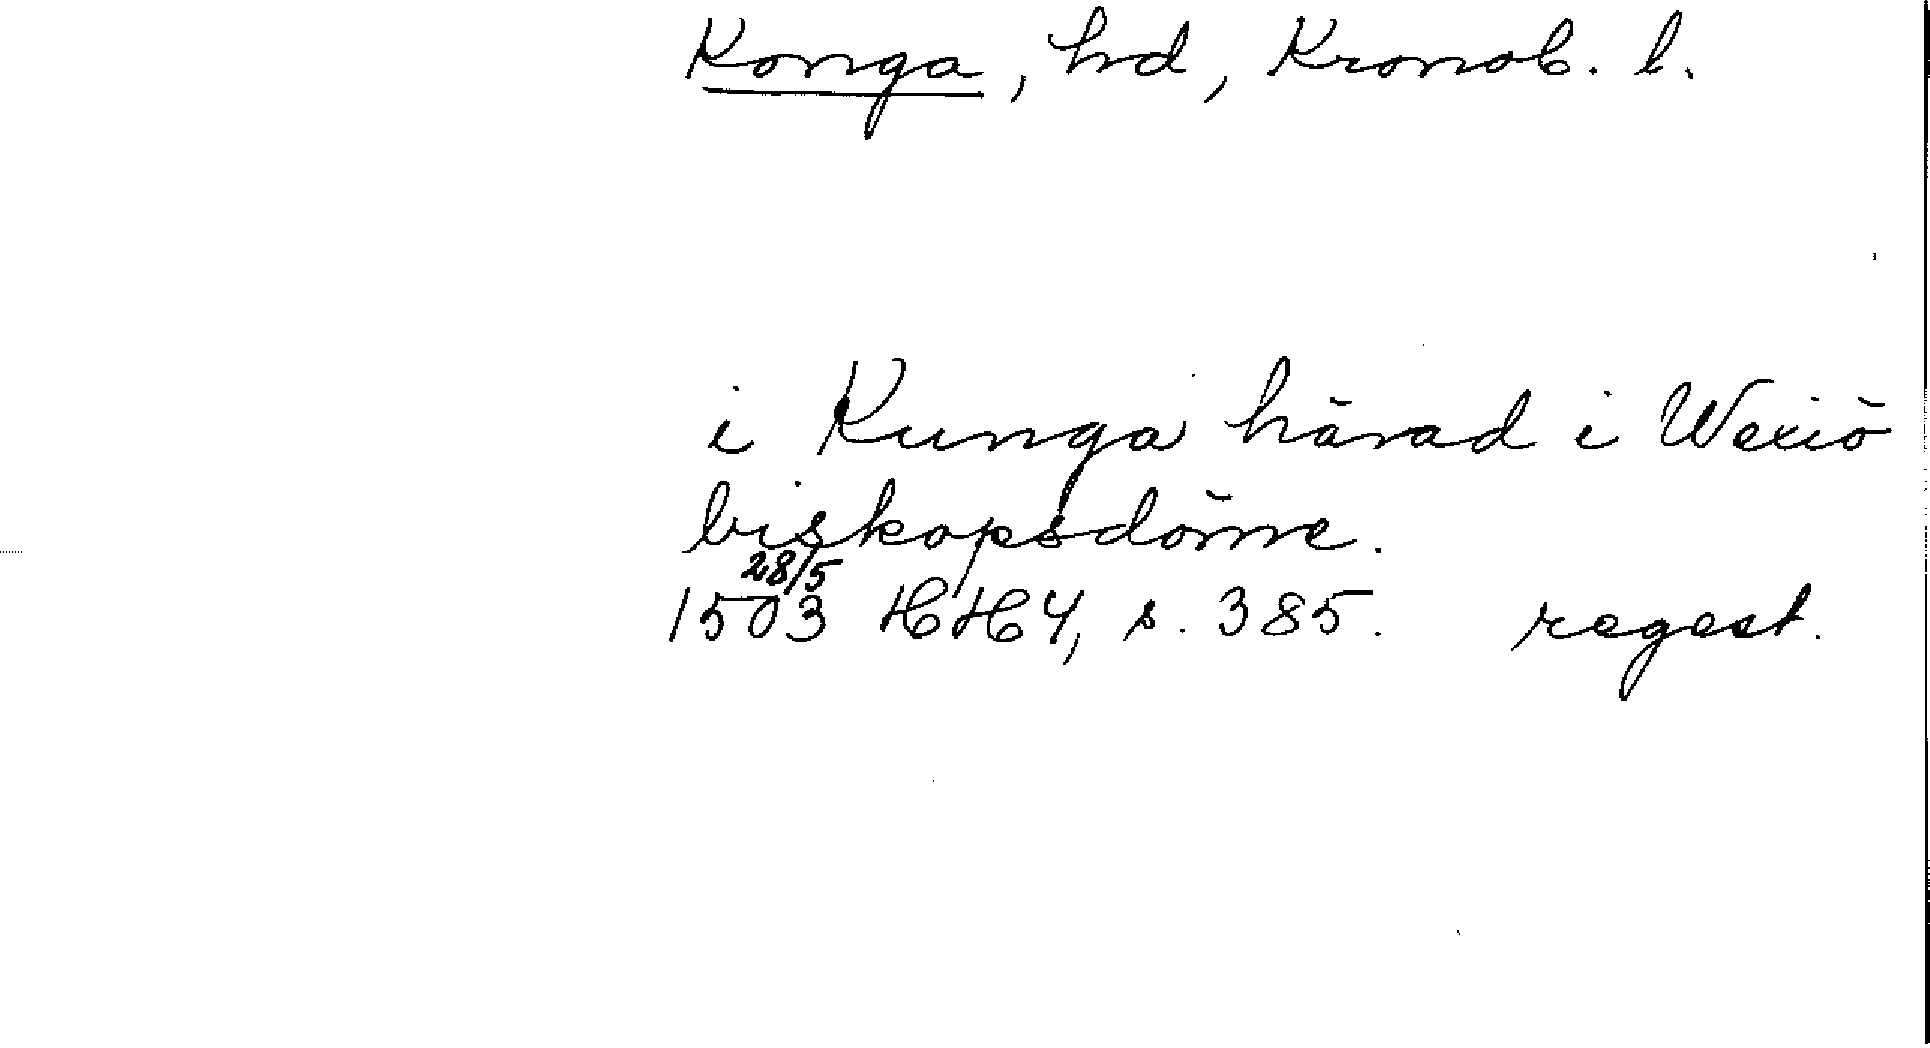 Konga, hd, Kronob. l.
i Kunga härad i Wexiö
biskopsdöme.
28/5
1503 HH4, s. 385. regest.